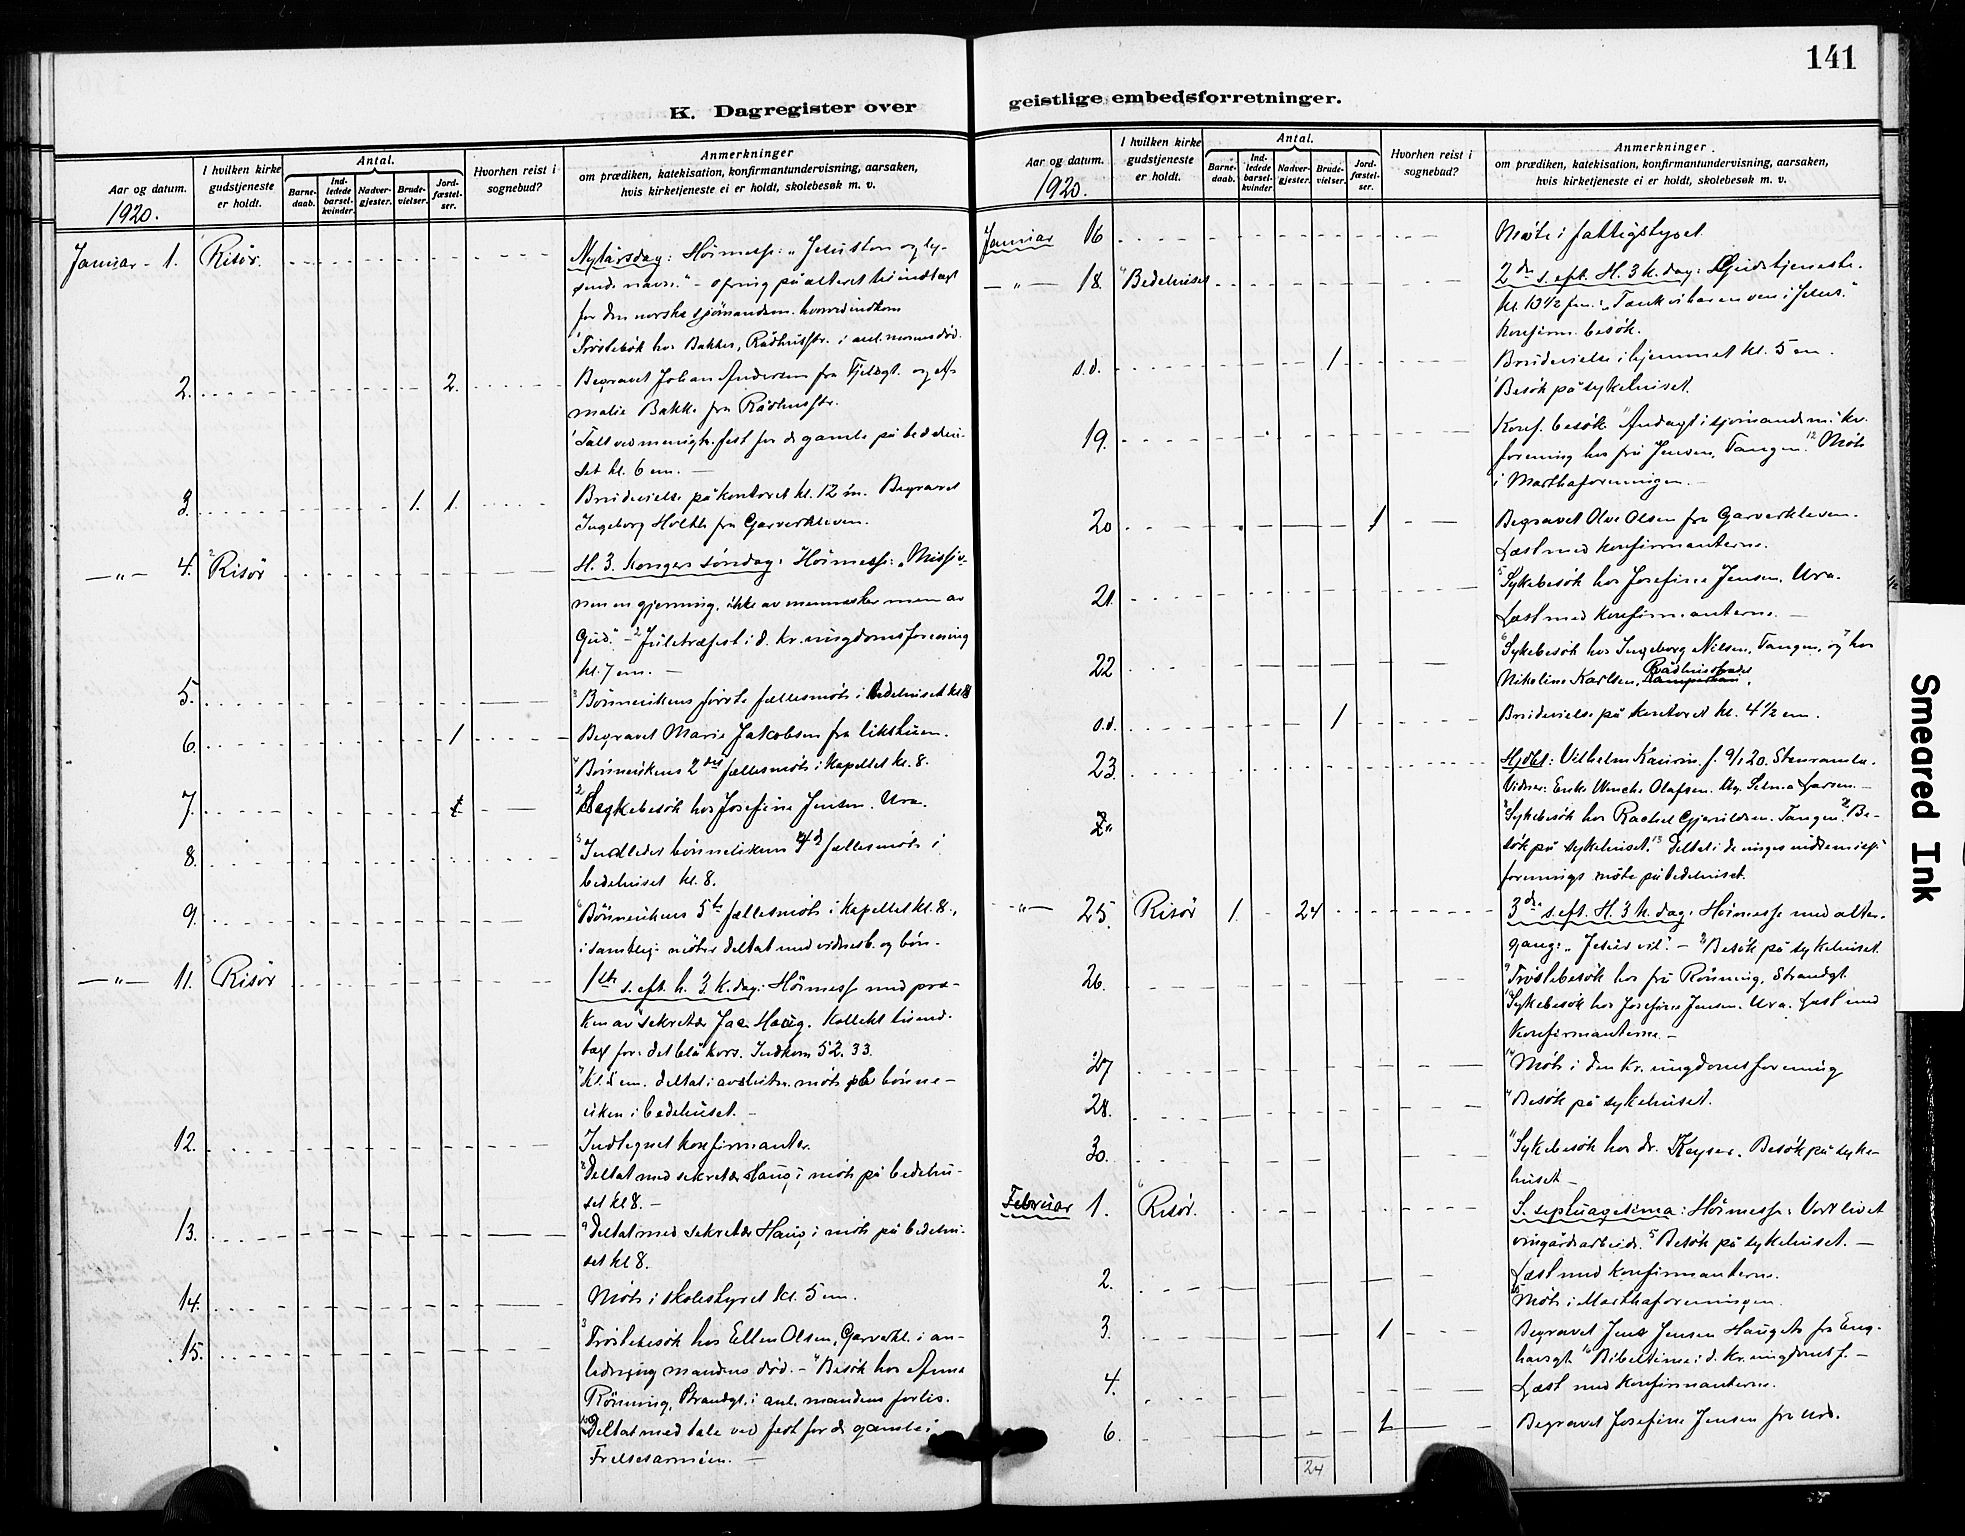 141
K. Dagregister over
geistlige embedsforretninger.
Aar og datum.
1920.
I hvilken kirke
gudstjeneste
er holdt.
Antal.
Barne-
daab.
Ind-
ledede
barsel-
kvinder.
Nadver-
gjester.
Brude-
vielser.
Jord-
fæstel-
ser.
Hvorhen reist i
sognebud?
Anmerkninger
om prædiken, katekisation, konfirmantundervisning, aarsaken,
hvis kirketjeneste ei er holdt, skolebesøk m. v.
Januar - 1. Risör.
Nytårsdag: Höimesse: „Jesus
navn." - ofring på alteret til indtægt
for den norske sjömandsm.
Tröstebesök hos Bakke, Rådhusstr. i anl.
2. 2.
Begravet Johan Andersen fra og
malie Bakke fra Rådhusstr.
Talt ved menigh. fest for de gamle på bedehu-
set kl. 6 em. -
3. 1. 1.
Brudevielse på kontoret kl. 12 m. Begravet
Ingeborg Holte fra Garverkleven.
— „ — 4. Risör
H. 3. Kongers söndag: Höimesse: „Missio-
nen en gjerning, ikke av mennesker men av
Gud." - Juletræfest i d. kr. ungdomsforening
kl. 7 em. -
5.
Bönneukens förste fællesmöte i bedehuset kl 8
6. 1
Begravet Marie Jakobsen fra likhuset.
Bönneukens 2det fællesmöte i kapellet kl. 8.
7.
Sykebesök hos Josefine Jensen, Ura.
8.
Indledet bönneukens 4d fællesmöte i
bedehuset kl. 8.
9.
Bönneukens 5te fællesmöte i kapellet kl. 8.,
i samtlige möter deltat med vidnesb. og bön.
— „ — 11. Risör
1ste s. eft. h. 3 k. dag: Höimesse med præ-
ken av sekretær Jac. Haug. Kollekt til ind-
tægt for: det blå kors. Indkom 52.33.
Kl. 8 em. deltat i avslutn. möte på bönne-
uken i bedehuset. -
12.
Indtegnet konfirmanter.
Deltat med sekretær Haug i möte på bedehu-
set kl 8. -
13.
Deltat med sekretær Haug i möte på bedehu-
set kl 8.
14.
Möte i skolestyret kl. 5 em.
15.
Tröstebesök hos Ellen Olsen, Garverkl. i an-
ledning mandens död. - Besök hos Anna
Rönning, Strandgt. i anl. mandens forlis.
Deltat med tale ved fest for de gamle i
Frelsesarmeen. -
Aar og datum.
1920.
I hvilken kirke
gudstjeneste
er holdt.
Antal.
Barne-
daab.
Ind-
ledede
barsel-
kvinder
Nadver-
gjester.
Brude-
vielser.
Jord-
fæstel-
ser.
Hvorhen reist i
sognebud?
Anmerkninger.
om prædiken, katekisation, konfirmantundervisning, aarsaken,
hvis kirketjeneste ei er holdt, skolebesøk m. v.
Januar 16
Möte i fattigstyret
— „ — 18. Bedehuset
2den s. eft. H. 3 k. dag: Gudstjeneste.
kl. 10 1/2 fm.: „Tænk vi har en ven i Jesus."
Konfirm. besök.
s.d. 1
Brudevielse i hjemmet kl. 5 em.
Besök på sykehuset.
19.
Konf. besök Andagt i sjömandsm. kv.
forening hos fru Jensen, Tangen. Möte
i Marthaforeningen. -
20 1
Begravet Olve Olsen fra Garverkleven.
Læst med konfirmanterne.
21.
Sykebesök hos Josefine Jensen, Ura.
Læst med konfirmanterne. -
22
Sykebesök hos Ingeborg Nilsen, Tangen, og hos
Nikoline Karlsen, Rådhusstrædet
s.d. 1
Brudevielse på kontoret kl. 4 1/2 em.
23.
Hjdbt: Vilhelm Kaurin f. 9/1 20. Stenramla.
Vidner: Enke Wenche Olafsen. Ug. Selma Larsen. -
Sykebesök hos Rachel Gjeruldsen. Tangen. Be-
sök på sykehuset. Deltat i de unges indremiss.
forenings möte på bedehuset.
— „ — 25. Risör 1. 24
3die s. eft. H. 3 k. dag: Höimesse med alter-
gang: „Jesus vil". - Besök på sykehuset.
26.
Tröstebesök hos fru Rönning, Strandgt.
Sykebesök hos Josefine Jensen. Ura. Læst med
konfirmanterne. -
27
Möte i den kr. ungdomsforening
28.
Besök på sykehuset.
30.
Sykebesök hos dr. Keyser. Besök på syke-
huset -
Februar 1. Risör.
S. septuagesima: Höimesse: Vort livet
vingårdsarbeide. Besök på sykehuset. -
2.
Læst med konfirmanterne.
Möte i Marthaforeningen.
3. 1
Begravet Jens Jensen Hauget fra Eng-
havgt. Bibeltime i d. kr. ungdomsf. -
4.
Læst med konfirmanterne.
6. 1
Begravet Josefine Jensen fra Ura.
24
Smeared Ink